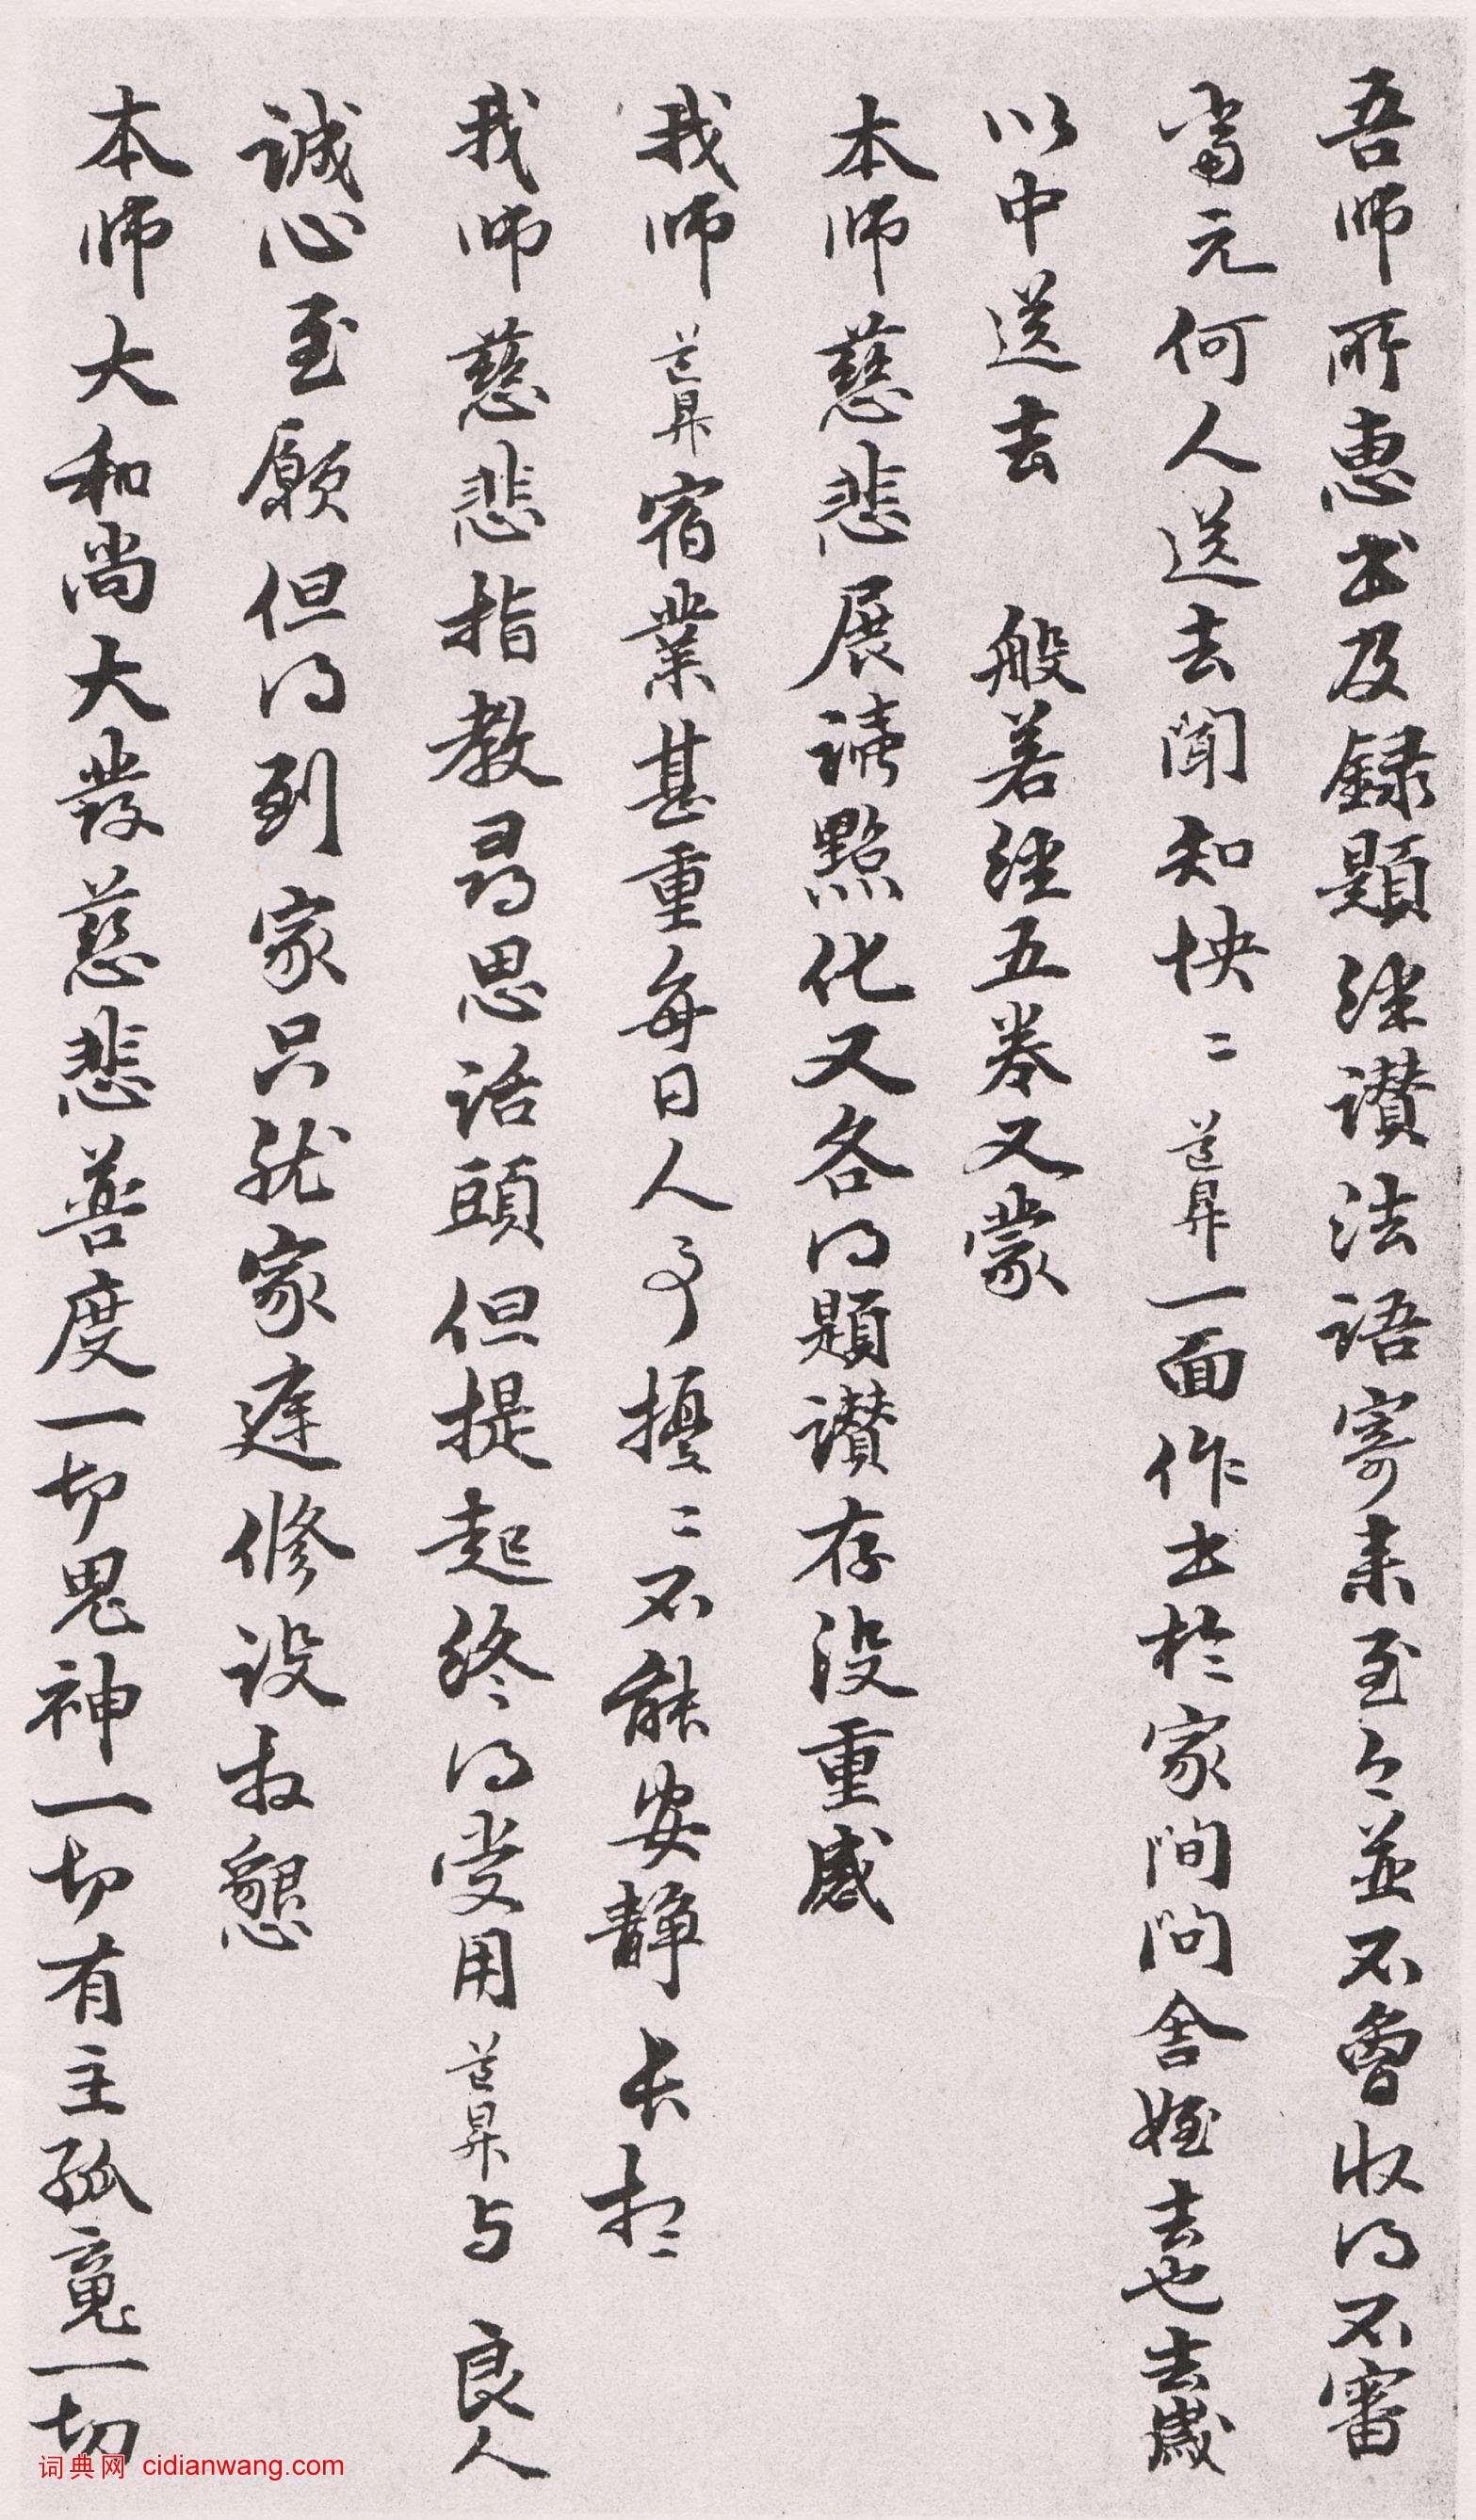 吾师所惠书及録題經讃法语寄来至今並不曾收得不審
當元何人送去聞知怏〻道昇一面作书於家间问舍姪去也去歲
以中送去 般若经五卷又蒙
本师慈悲展读點化又各得題讃存没重感
我师道昇宿業甚重每日人事擾〻不能安静长想
我师慈悲指教尋思话頭但提起终得受用道昇与 良人
誠心至願但得到家只就家庭修设拔懇
本师大和尚大發慈悲普度一切鬼神一切有主孤䰟一切
词典网 cidianwang.com